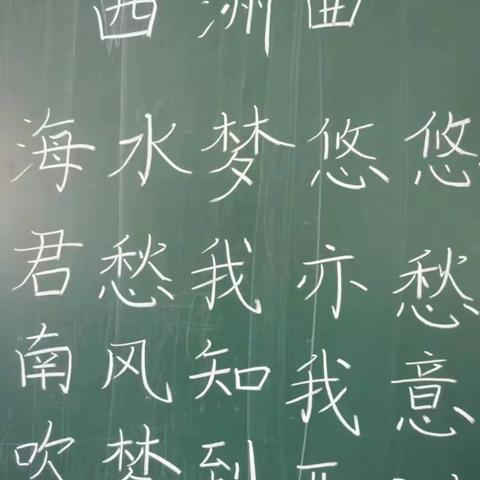 西洲曲
海水梦悠悠
君愁我亦愁
南风知我意
吹梦到西